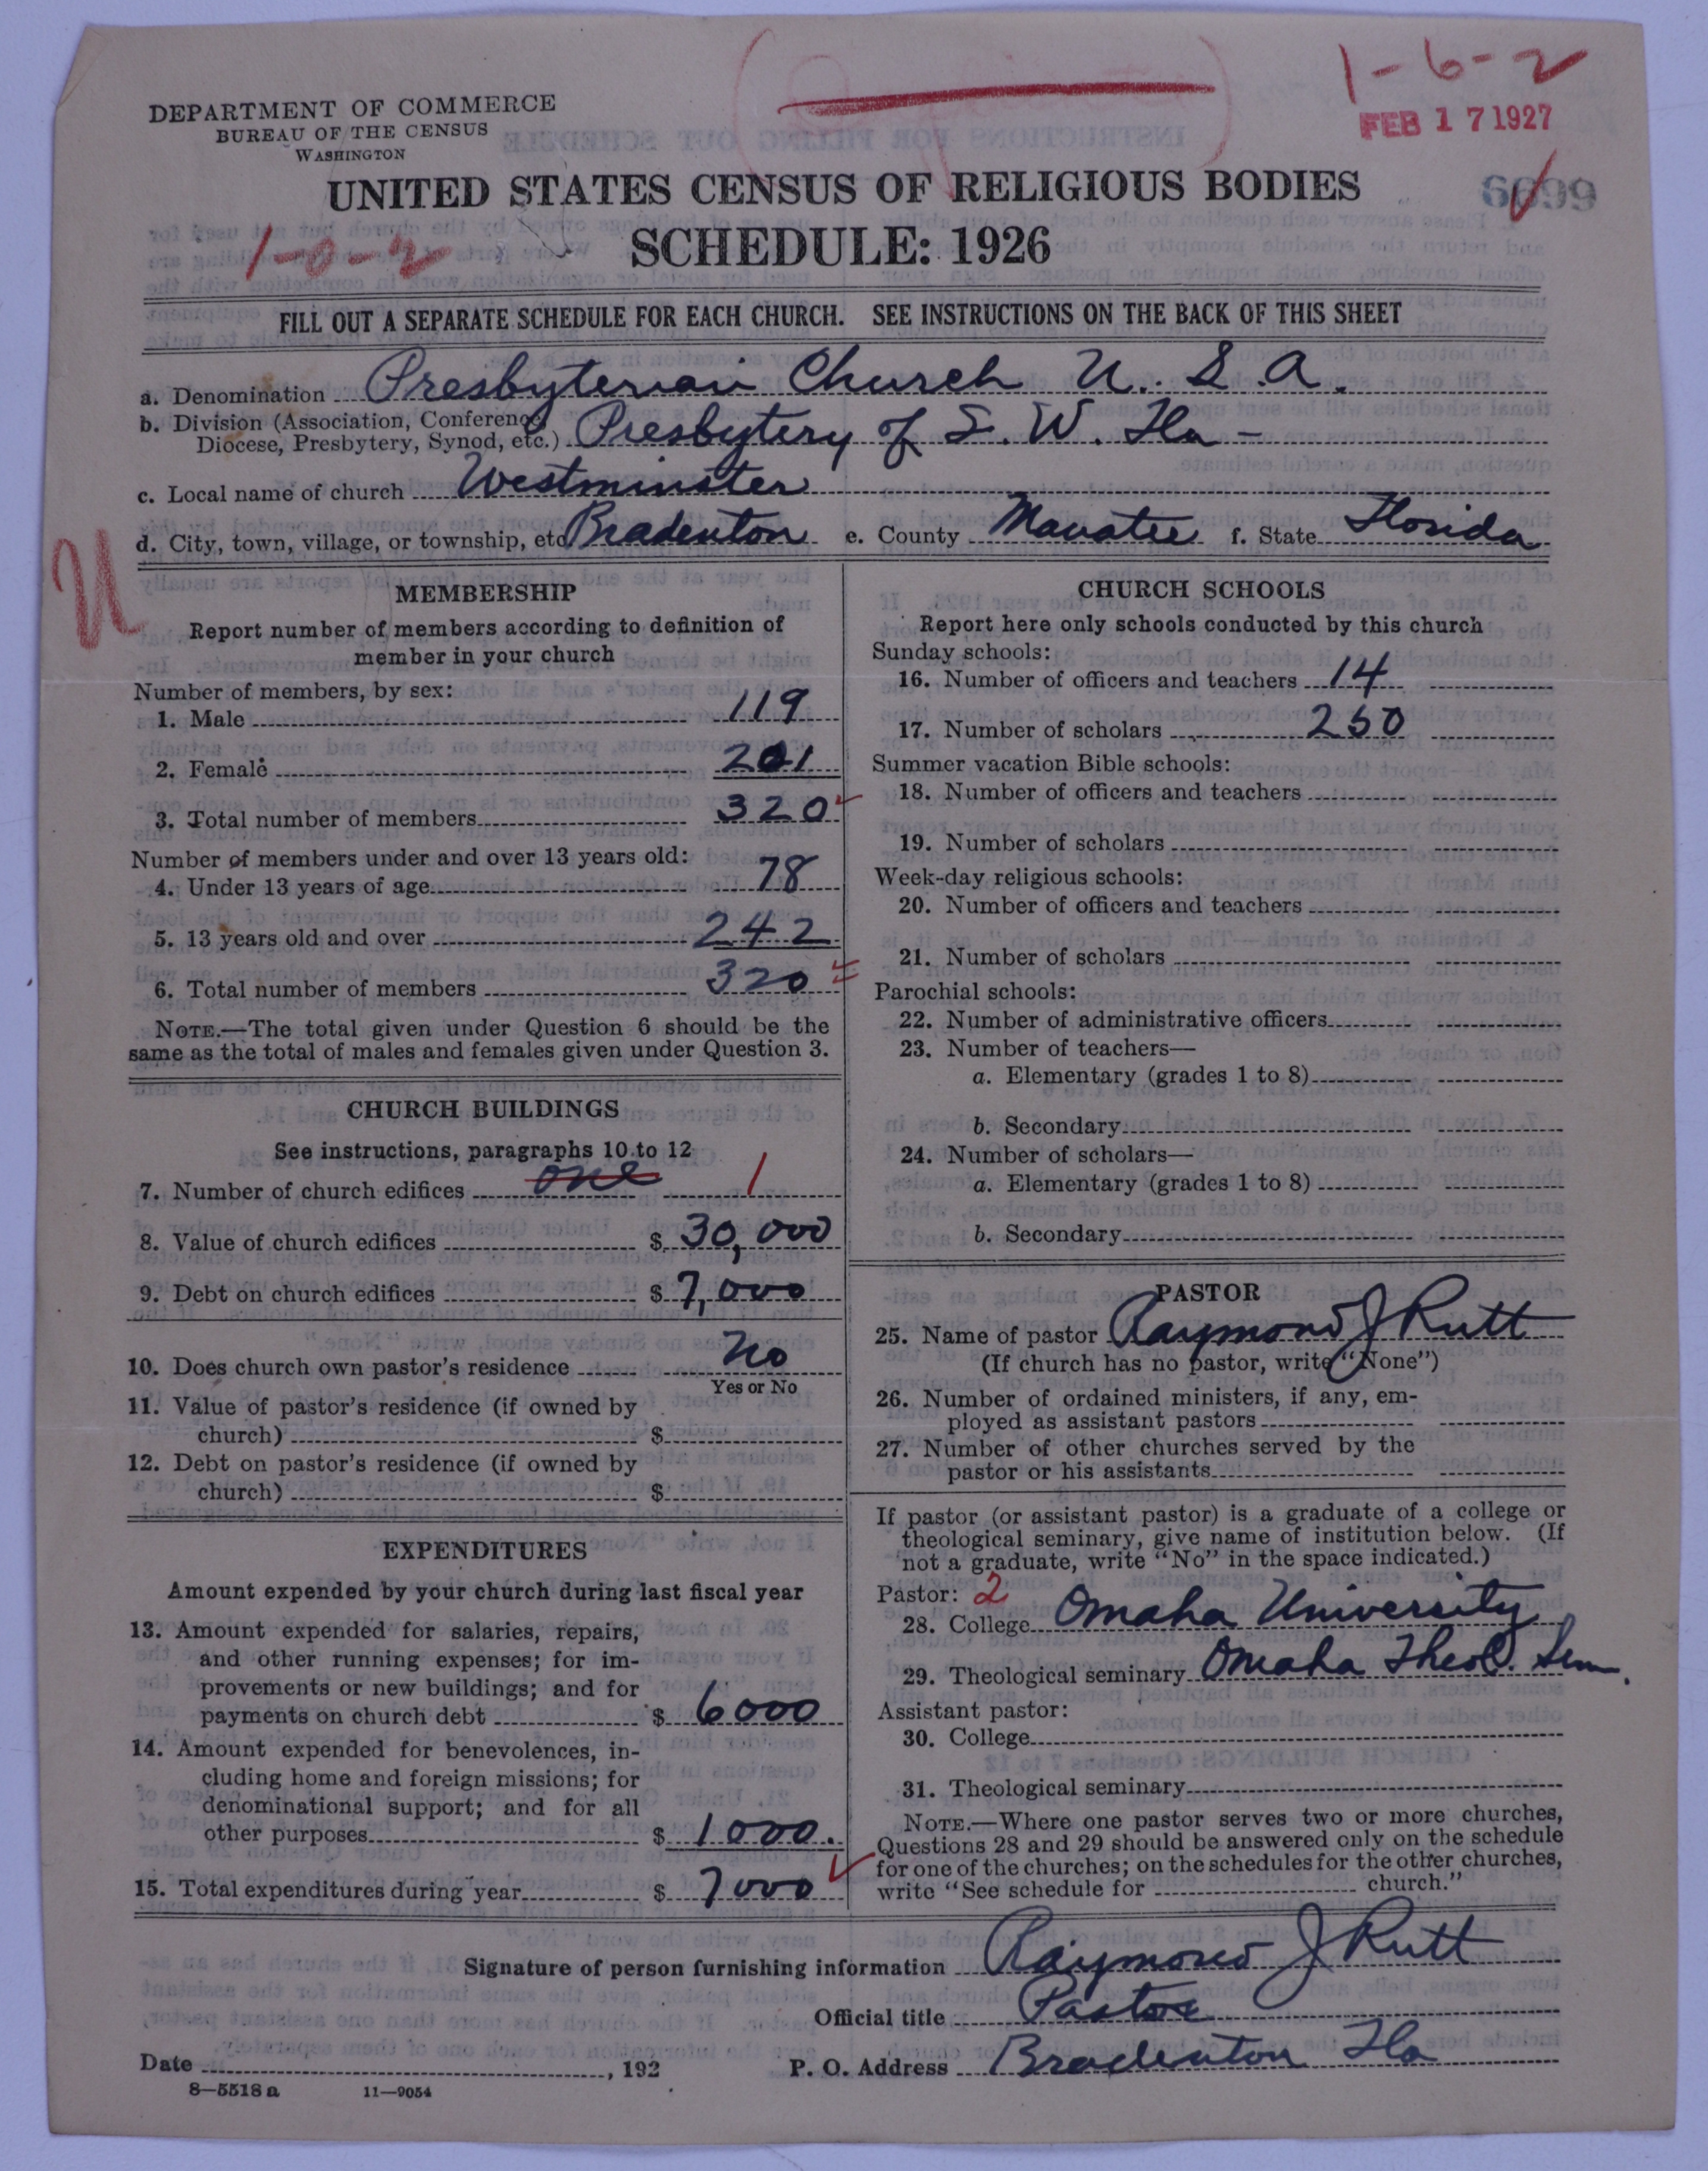 1-6-2
DEPARTMENT OF COMMERCE
BUREAU OF THE CENSUS
WASHINGTON
FEB 17 1927
UNITED STATES CENSUS OF RELIGIOUS BODIES
6699
1-0-2
SCHEDULE: 1926
FILL OUT A SEPARATE SCHEDULE FOR EACH CHURCH. SEE INSTRUCTIONS ON THE BACK OF THIS SHEET
a. Denomination Presbyterian Church U. S. A.
b. Division (Association, Conference,
Diocese, Presbytery, Synod, etc.) Presbytery of S. W. Fla -
c. Local name of church Westminster
d. City, town, village, or township, etc. Bradenton e. County Manatee f. State Florida
U
MEMBERSHIP
Report number of members according to definition of
member in your church
Number of members, by sex:
1. Male 119
2. Female 201
3. Total number of members 320
Number of members under and over 13 years old:
4. Under 13 years of age 78
5. 13 years old and over 242
6. Total number of members 320
NOTE.—The total given under Question 6 should be the
same as the total of males and females given under Question 3.
CHURCH BUILDINGS
See instructions, paragraphs 10 to 12
7. Number of church edifices one 1
8. Value of church edifices $ 30,000
9. Debt on church edifices $ 7,000
10. Does church own pastor's residence No
Yes or No
11. Value of pastor's residence (if owned by
church) $
12. Debt on pastor's residence (if owned by
church) $
EXPENDITURES
Amount expended by your church during last fiscal year
13. Amount expended for salaries, repairs,
and other running expenses; for im-
provements or new buildings; and for
payments on church debt $ 6000
14. Amount expended for benevolences, in-
cluding home and foreign missions; for
denominational support; and for all
other purposes $ 1000.
15. Total expenditures during year $ 7000
CHURCH SCHOOLS
Report here only schools conducted by this church
Sunday schools:
16. Number of officers and teachers 14
17. Number of scholars 250
Summer vacation Bible schools:
18. Number of officers and teachers
19. Number of scholars
Week-day religious schools:
20. Number of officers and teachers
21. Number of scholars
Parochial schools:
22. Number of administrative officers
23. Number of teachers—
a. Elementary (grades 1 to 8)
b. Secondary
24. Number of scholars—
a. Elementary (grades 1 to 8)
b. Secondary
PASTOR
25. Name of pastor Raymond J Rutt
(If church has no pastor, write "None")
26. Number of ordained ministers, if any, em-
ployed as assistant pastors
27. Number of other churches served by the
pastor or his assistants
If pastor (or assistant pastor) is a graduate of a college or
theological seminary, give name of institution below. (If
not a graduate, write "No" in the space indicated.)
Pastor: 2
28. College Omaha University
29. Theological seminary Omaha Theol. Sem.
Assistant pastor:
30. College
31. Theological seminary
NOTE.—Where one pastor serves two or more churches,
Questions 28 and 29 should be answered only on the schedule
for one of the churches; on the schedules for the other churches,
write "See schedule for church."
Signature of person furnishing information Raymond J Rutt
Official title Pastor
Date , 192 P. O. Address Bradenton Fla
8—5518 a 11—9054